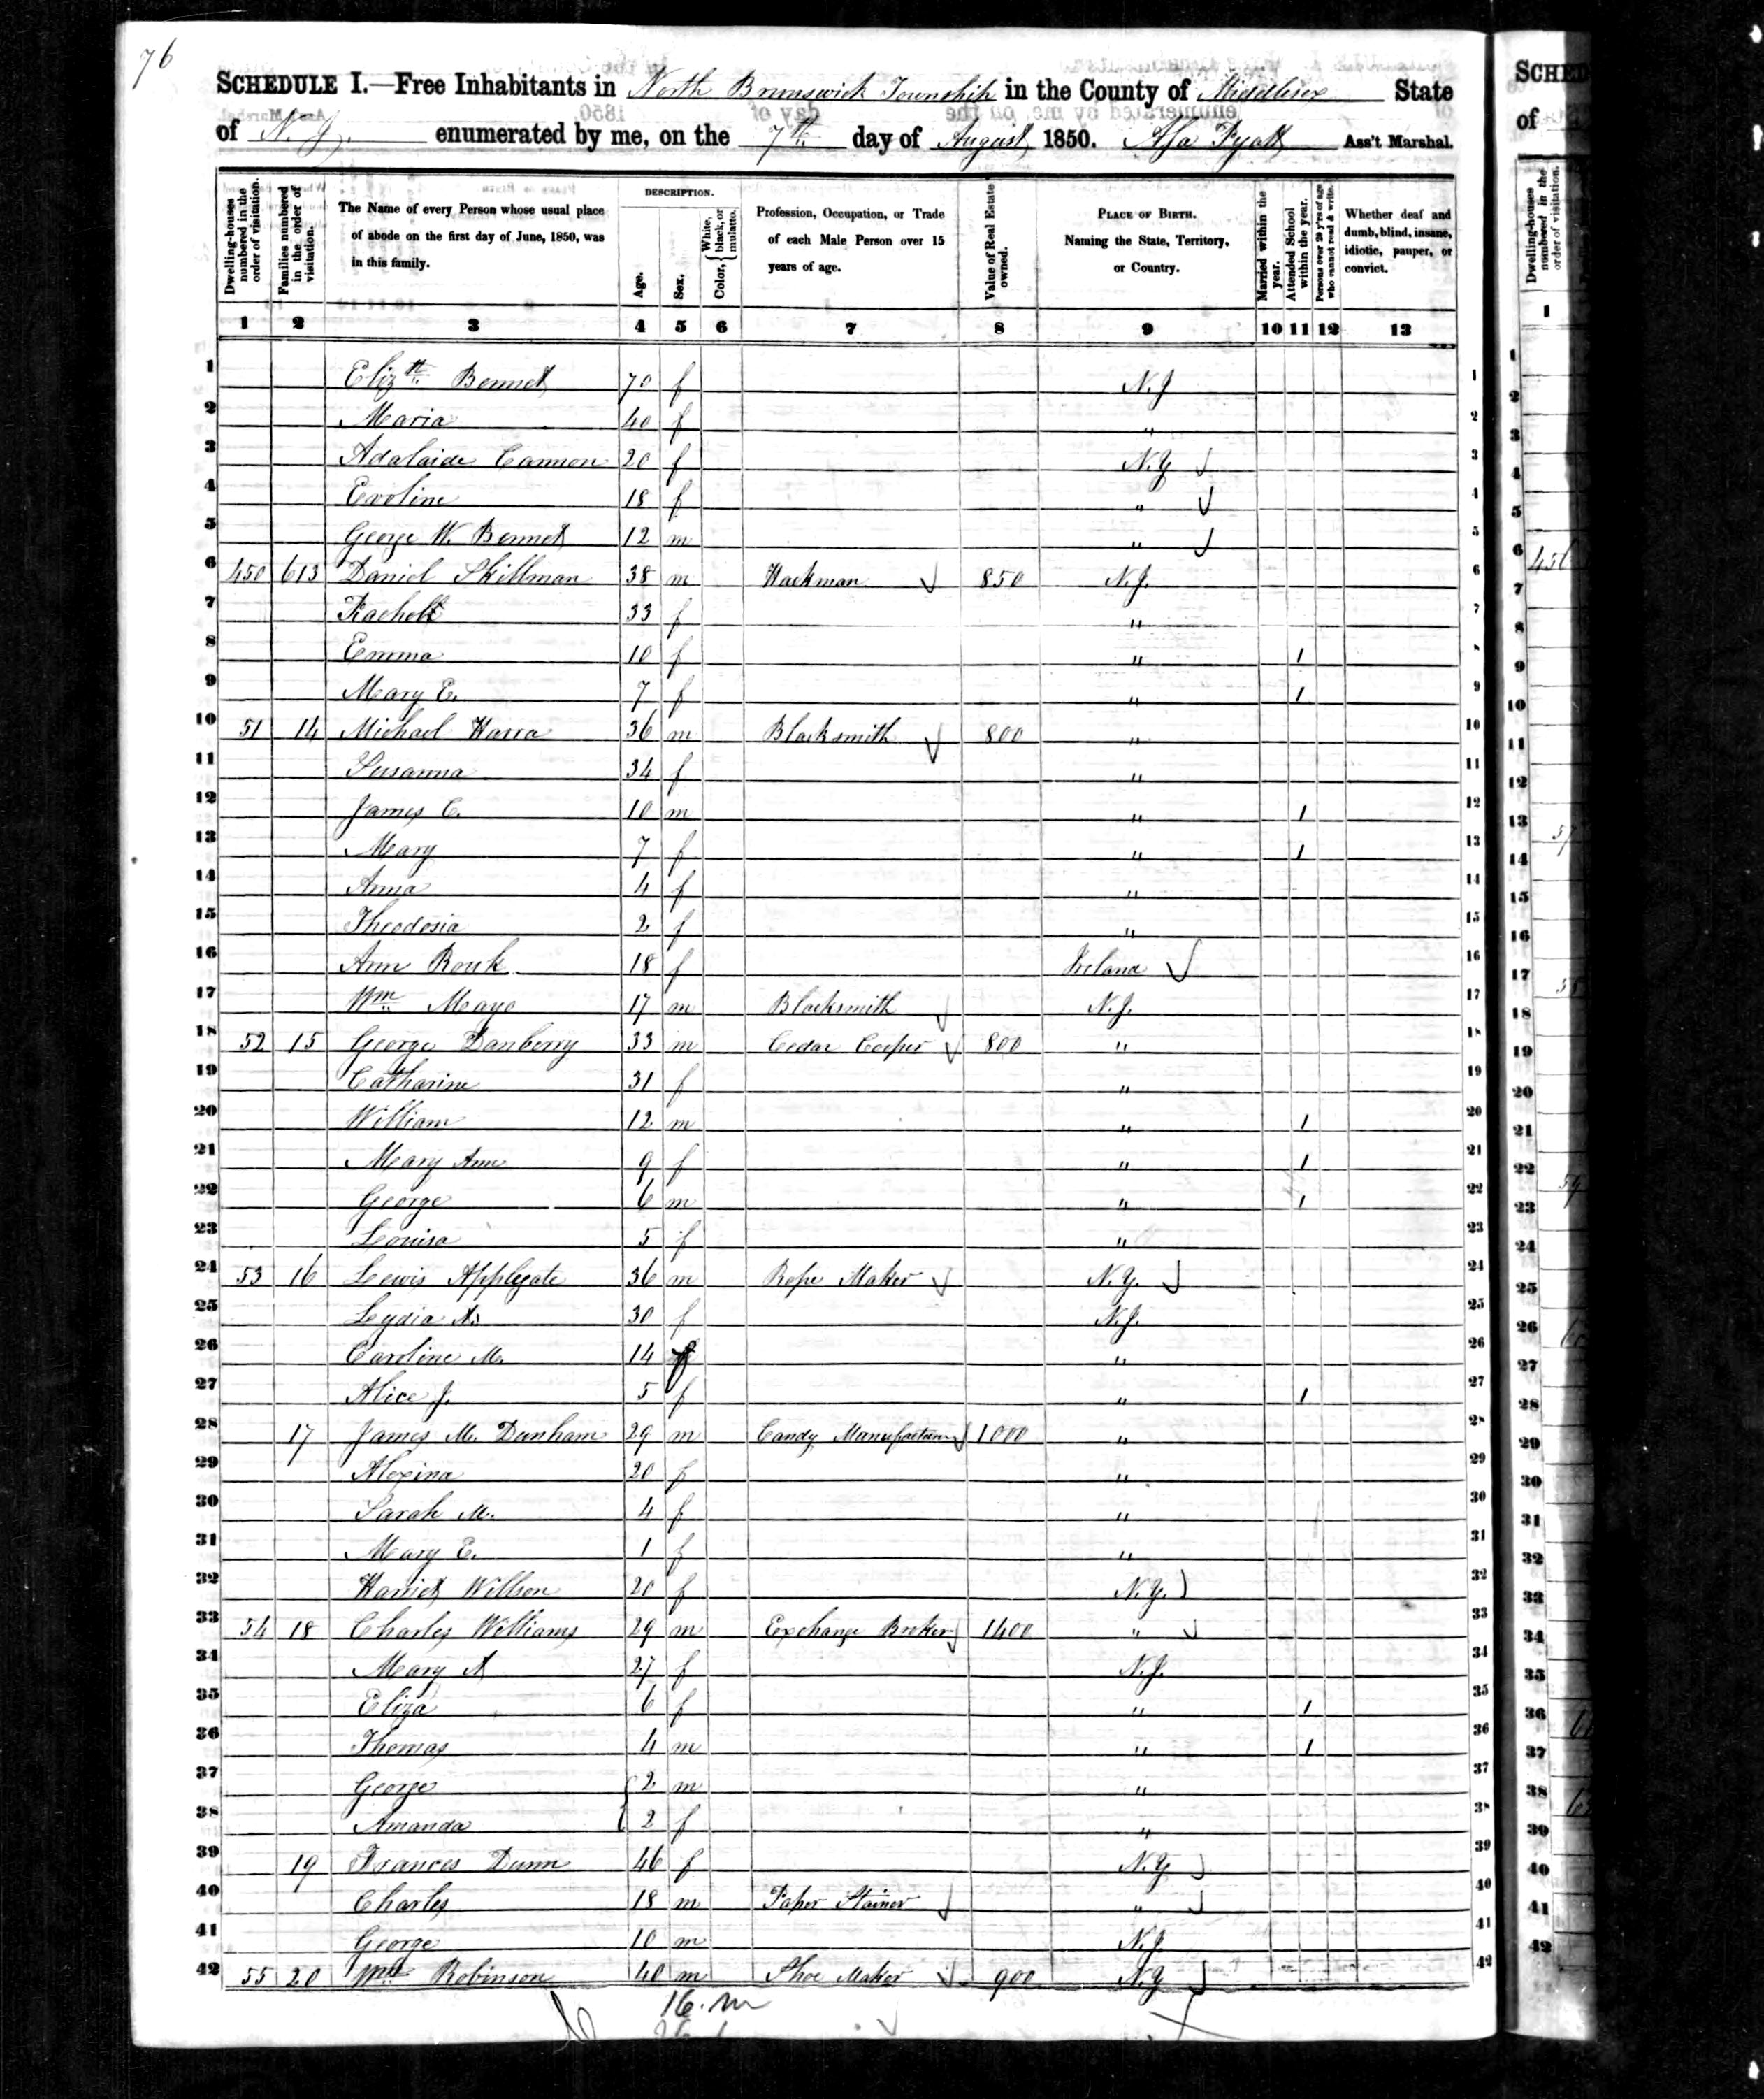 76
SCHEDULE I.—Free Inhabitants in North Brunswick Township in the County of Middlesex State
of N. J. enumerated by me, on the 7th day of August 1850. Asa Fyatt Ass't Marshal.
Dwelling-houses numbered in the order of visitation.
Families numbered in the order of visitation.
The Name of every Person whose usual place of abode on the first day of June, 1850, was in this family.
DESCRIPTION.
Age.
Sex.
Color, { White, black, or mulatto.
Profession, Occupation, or Trade of each Male Person over 15 years of age.
Value of Real Estate owned.
PLACE OF BIRTH. Naming the State, Territory, or Country.
Married within the year.
Attended School within the year.
Persons over 20 y'rs of age who cannot read & write.
Whether deaf and dumb, blind, insane, idiotic, pauper, or convict.
1 2 3 4 5 6 7 8 9 10 11 12 13
1 Elizth Bennet 70 f N.J 1
2 Maria 40 f " 2
3 Adalaide Cannon 20 f N.Y 3
4 Evoline 18 f " 4
5 George W. Bennet 12 m " 5
6 450 613 Daniel Skillman 38 m Hackman 850 N.J. 6
7 Rachell 33 f " 7
8 Emma 10 f " 1 8
9 Mary E. 7 f " 1 9
10 51 14 Michael Harra 36 m Blacksmith 800 " 10
11 Susanna 34 f " 11
12 James C. 10 m " 1 12
13 Mary 7 f " 1 13
14 Anna 4 f " 14
15 Theodosia 2 f " 15
16 Ann Rouk 18 f Ireland 16
17 Wm Mayo 17 m Blacksmith N.J. 17
18 52 15 George Danberry 33 m Cedar Cooper 800 " 18
19 Catharine 31 f " 19
20 William 12 m " 1 20
21 Mary Ann 9 f " 1 21
22 George 6 m " 1 22
23 Louisa 5 f " 23
24 53 16 Lewis Applegate 36 m Rope Maker N.Y. 24
25 Lydia A. 30 f N.J. 25
26 Caroline M. 14 f " 26
27 Alice J. 5 f " 1 27
28 17 James M. Dunham 29 m Candy Manufacturer 1000 " 28
29 Alexina 20 f " 29
30 Sarah M. 4 f " 30
31 Mary E. 1 f " 31
32 Harriet Willson 20 f N.Y. 32
33 54 18 Charles Williams 29 m Exchange Broker 1400 " 33
34 Mary A 27 f N.J. 34
35 Eliza 6 f " 1 35
36 Thomas 4 m " 1 36
37 George { 2 m " 37
38 Amanda { 2 f " 38
39 19 Frances Dunn 46 f N.Y 39
40 Charles 18 m Paper Stainer " 40
41 George 10 m N.J. 41
42 55 20 Wm Robinson 40 m Shoe Maker 900 N.Y 42
16. m